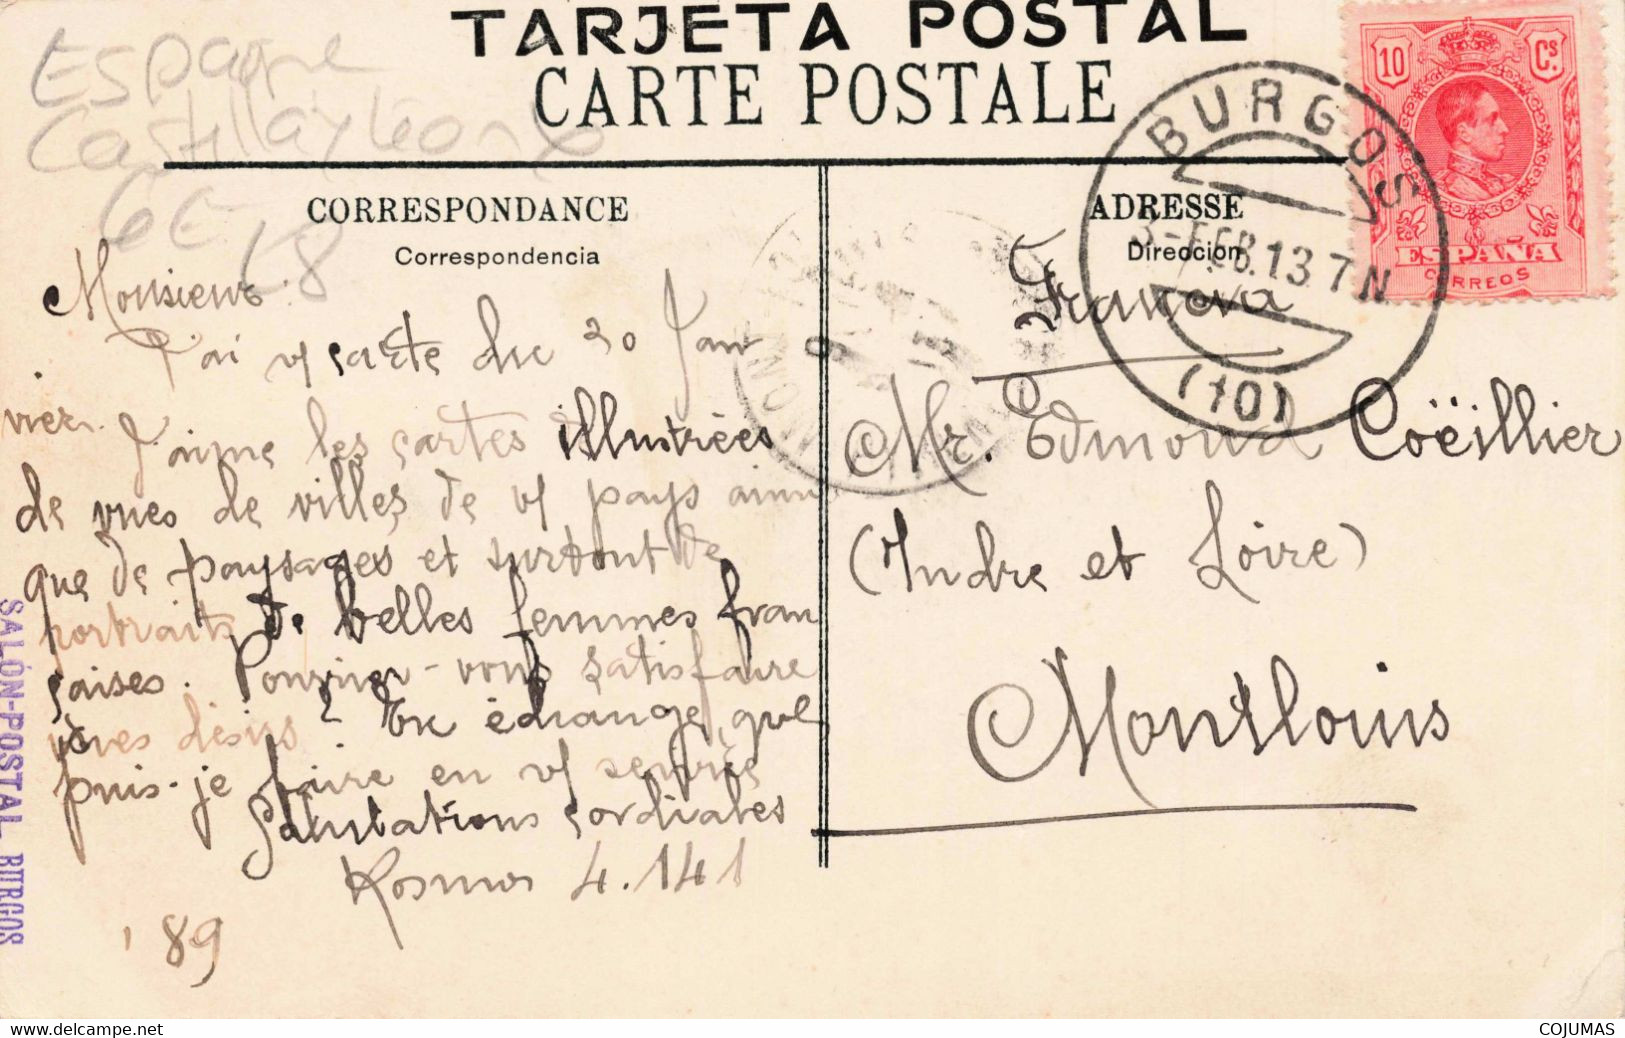 TARJETA POSTAL
CARTE POSTALE
Espagne
Castilla y León
6E
L8
CORRESPONDANCE
Correspondencia
ADRESSE
Dirección
BURGOS
3-FEB.13 7N
(10)
10 Cs.
ESPAÑA
CORREOS
Monsieur
J'ai v/ carte du 20 Jan
vier.
J'aime les cartes illustrées
de vues de villes de v/ pays ainsi
que de paysages et surtout de
portraits de belles femmes fran
çaises. Pourriez-vous satisfaire
mes désirs? En échange, que
puis-je faire en v/ service
Salutations cordiales
Kosmos 4.141
'89
Francia
Mr. Edmond Coëillier
(Indre et Loire)
Montlouis
SALÓN-POSTAL BURGOS
COJUMAS